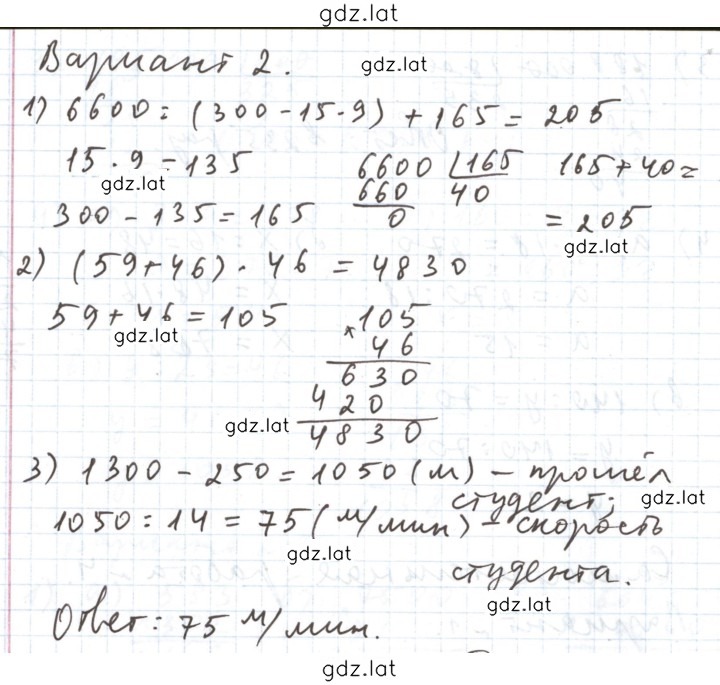 gdz.lat
Вариант 2. gdz.lat
1) 6600 : (300 - 15 · 9) + 165 = 205
15 · 9 = 135
gdz.lat
300 - 135 = 165
6600 165
660 40
0
165 + 40 =
= 205
gdz.lat
2) (59 + 46) · 46 = 4830
59 + 46 = 105
gdz.lat
× 105
46
630
420
gdz.lat
4830
3) 1300 - 250 = 1050 (м) - прошёл
студент; gdz.lat
1050 : 14 = 75 (м/мин) - скорость
gdz.lat
студента.
gdz.lat
Ответ: 75 м/мин.
gdz.lat